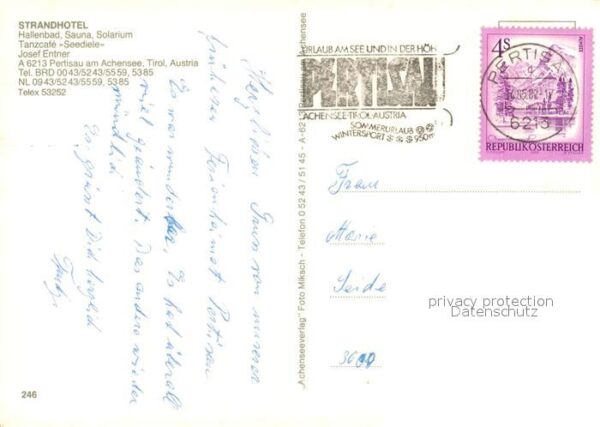 STRANDHOTEL
Hallenbad, Sauna, Solarium
Tanzcafé »Seediele«
Josef Entner
A 6213 Pertisau am Achensee, Tirol, Austria
Tel. BRD 00 43/52 43/55 59, 53 85
NL 09 43/52 43/55 59, 53 85
Telex 53252
Herzlichen Gruss von unserer
früheren Ferienheimat Pertisau
Es war wunderbar, Es hat überall
viel geändert. Das andere wieder
mündlich
Es grüsst Dich herzlich
246
„Achenseeverlag" Foto Miksch - Telefon 0 52 43 / 51 45 - A-62 Achensee
URLAUB AM SEE UND IN DER HÖH
PERTISAU
ACHENSEE-TIROL-AUSTRIA
SOMMERURLAUB
WINTERSPORT 950m
PERTISAU
6213
4S
REPUBLIK ÖSTERREICH
Frau
Marie
Seide
privacy protection
Datenschutz
3600